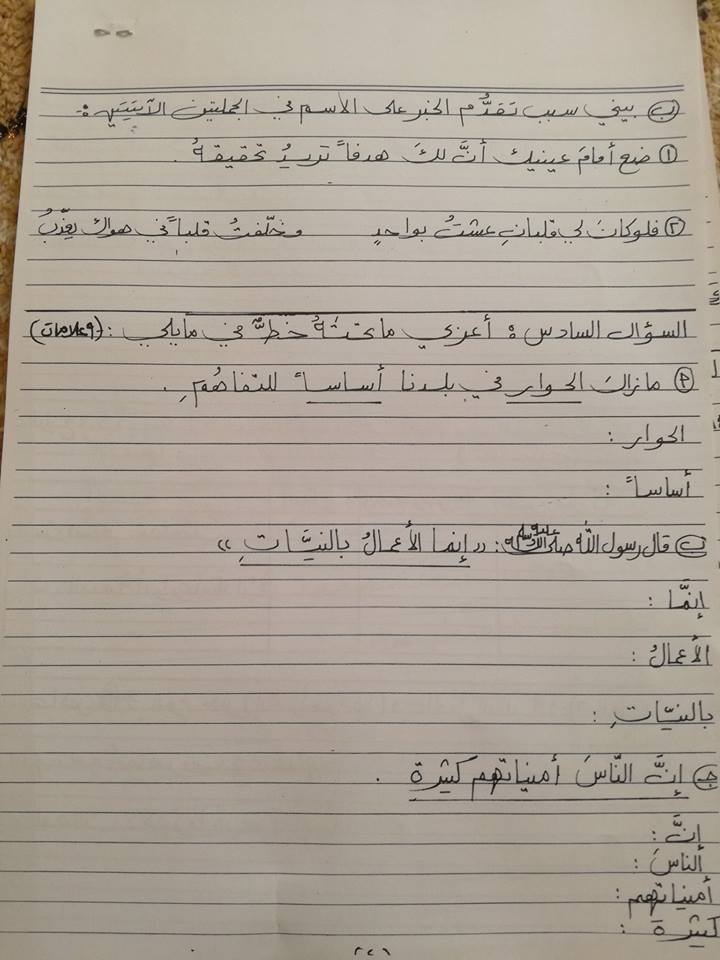 ب بيّني سبب تقدُّم الخبر على الاسم في الجملتين الآتيتين:
١ ضع أمامَ عينيك أنَّ لكَ هدفاً تريدُ تحقيقهُ.
٢ فلو كانَ لي قلبانِ عشتُ بواحدٍ وخلّفتُ قلباً في هواك يعذّبُ
السؤال السادس: أعربي ما تحتهُ خطٌّ في ما يلي: (٩ علامات)
أ ما زالَ الحوار في بلدنا أساساً للتفاهُمِ.
الحوار:
أساساً:
ب قال رسول الله صلى الله عليه وسلم: "إنما الأعمالُ بالنيَّاتِ"
إنمّا:
الأعمالُ:
بالنيّاتِ:
جـ إنَّ النّاسَ أمنياتهم كثيرة.
إنَّ:
الناسَ:
أمنياتهم:
كثيرة: